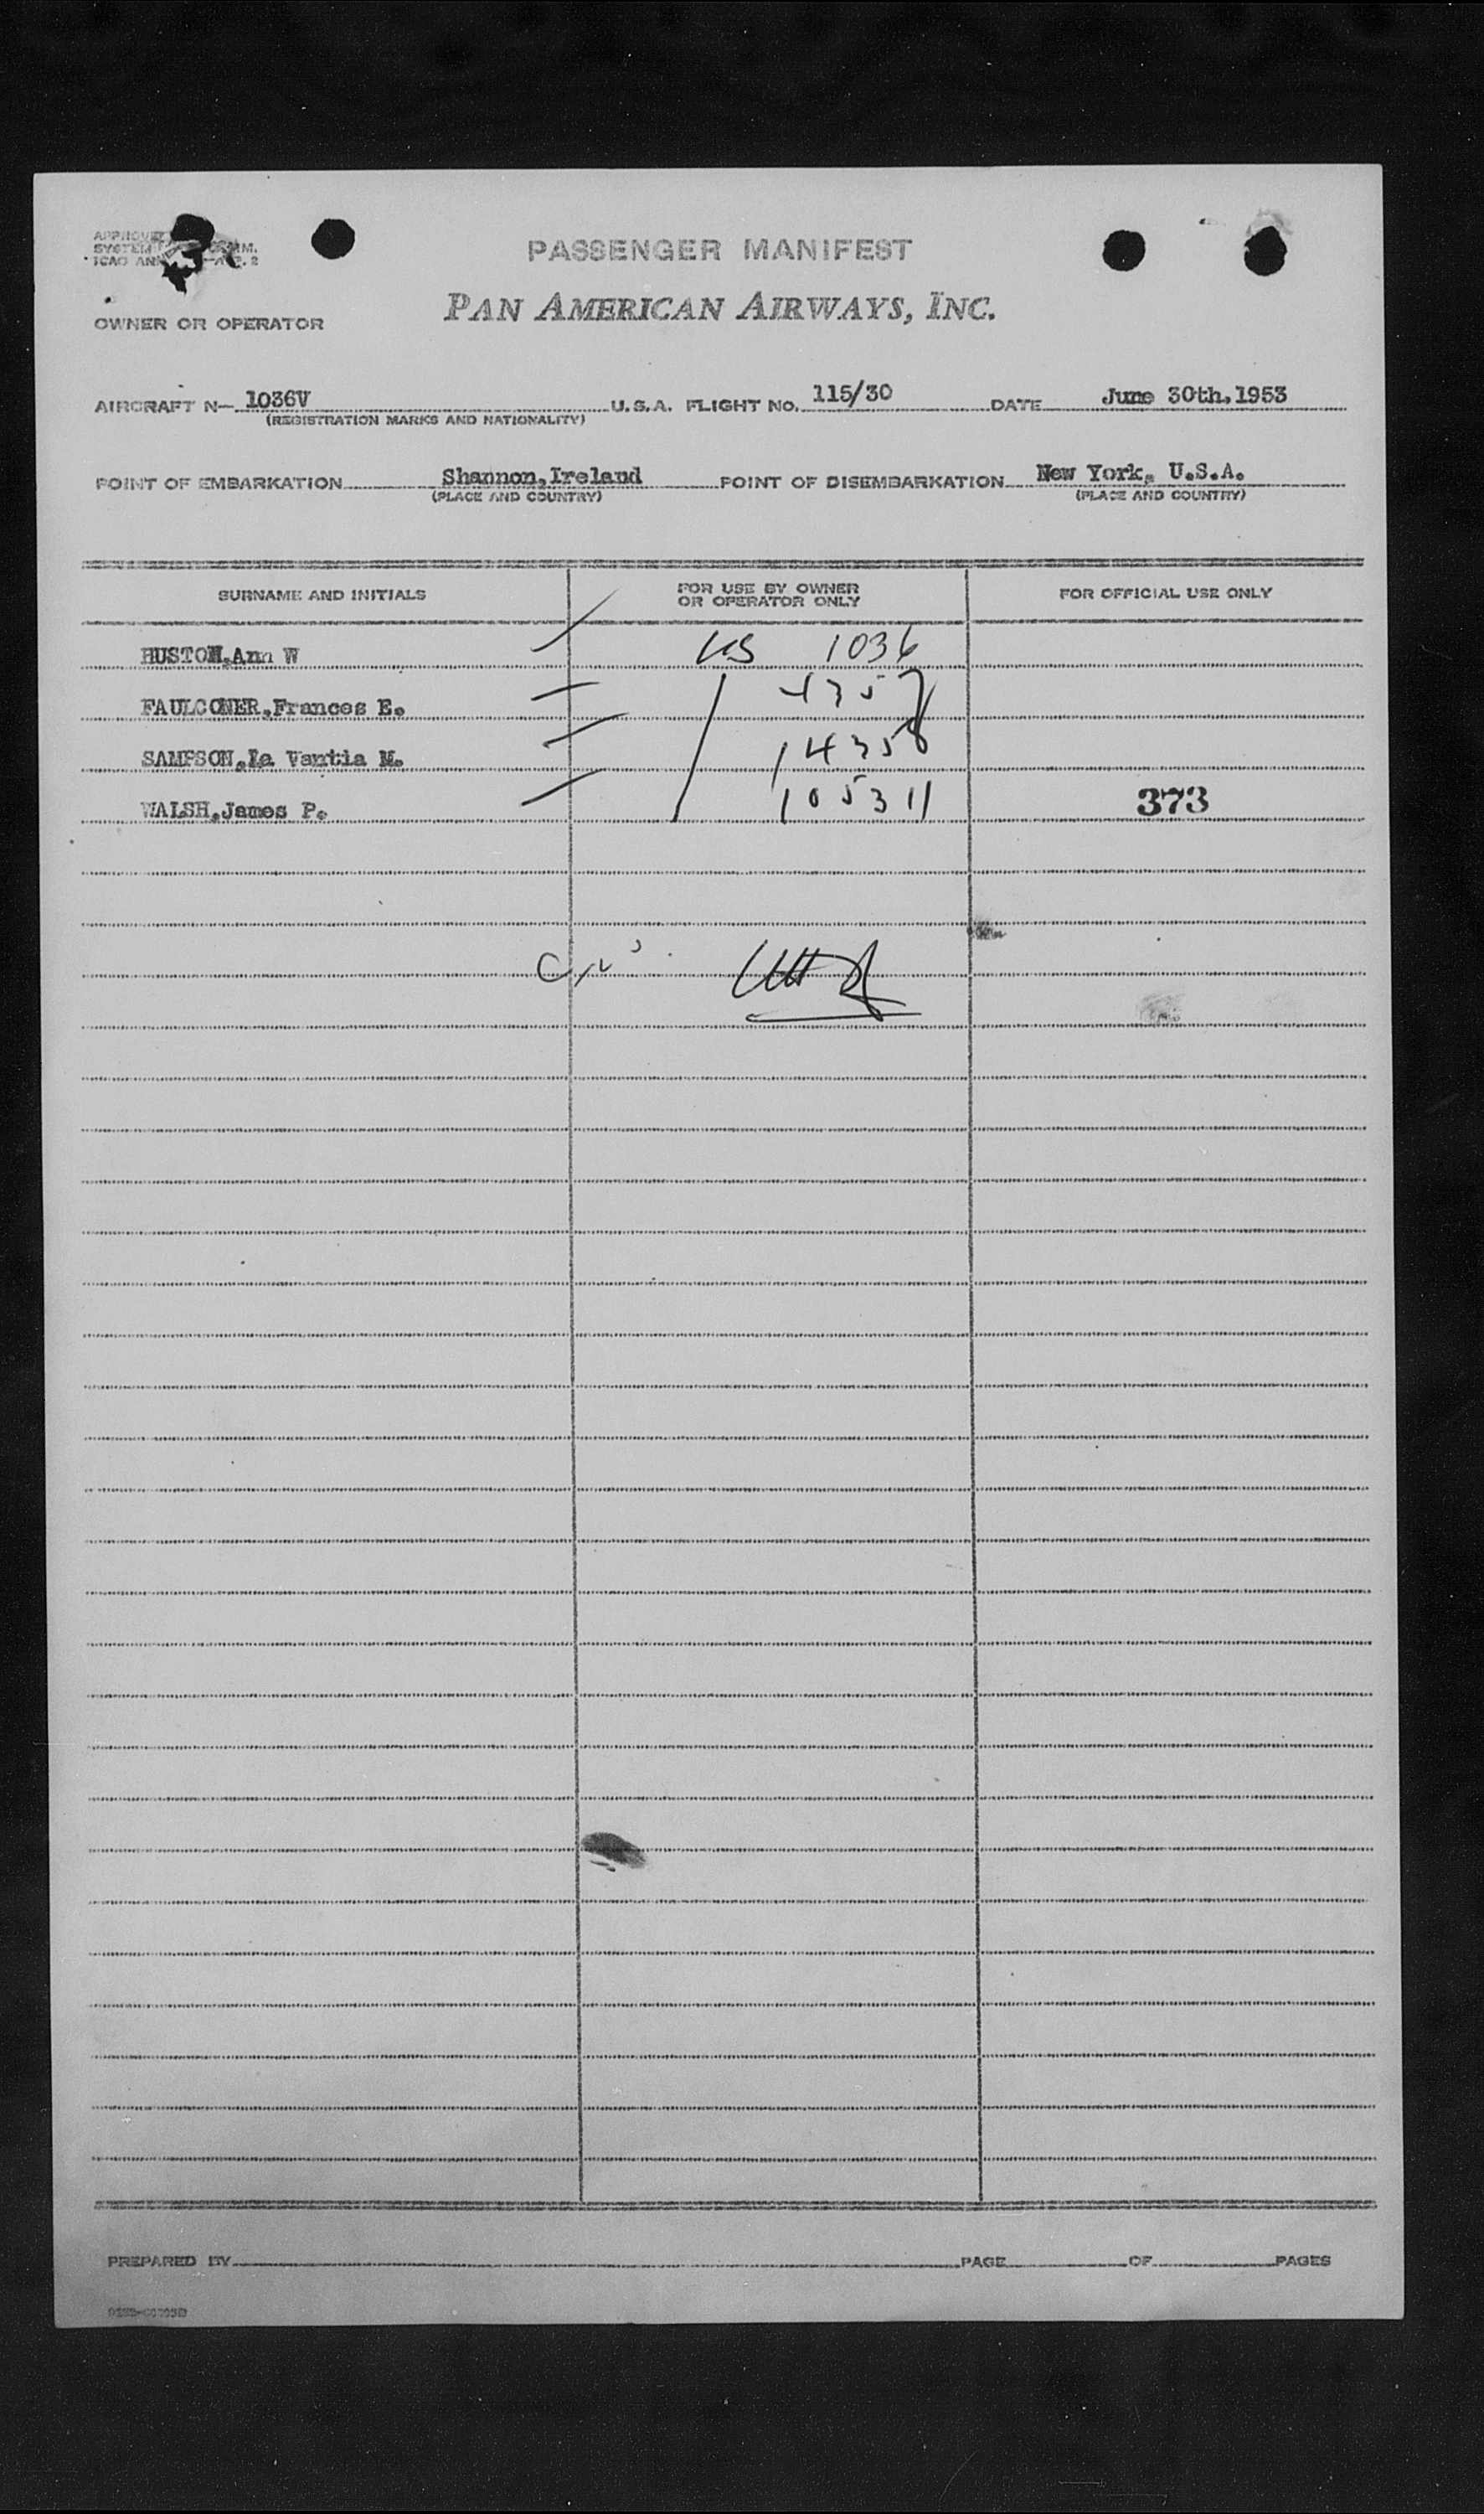 PASSENGER MANIFEST
PAN AMERICAN AIRWAYS, INC.
OWNER OR OPERATOR
AIRCRAFT N— 1036V U.S.A. FLIGHT NO. 115/30 DATE June 30th,1953
(REGISTRATION MARKS AND NATIONALITY)
POINT OF EMBARKATION Shannon,Ireland POINT OF DISEMBARKATION New York, U.S.A.
(PLACE AND COUNTRY) (PLACE AND COUNTRY)
SURNAME AND INITIALS FOR USE BY OWNER OR OPERATOR ONLY FOR OFFICIAL USE ONLY
HUSTON,Ann W US 1036
FAULCONER,Frances E.
SAMPSON,La Vantia M. 14358
WALSH,James P. 105311 373
PREPARED BY PAGE OF PAGES